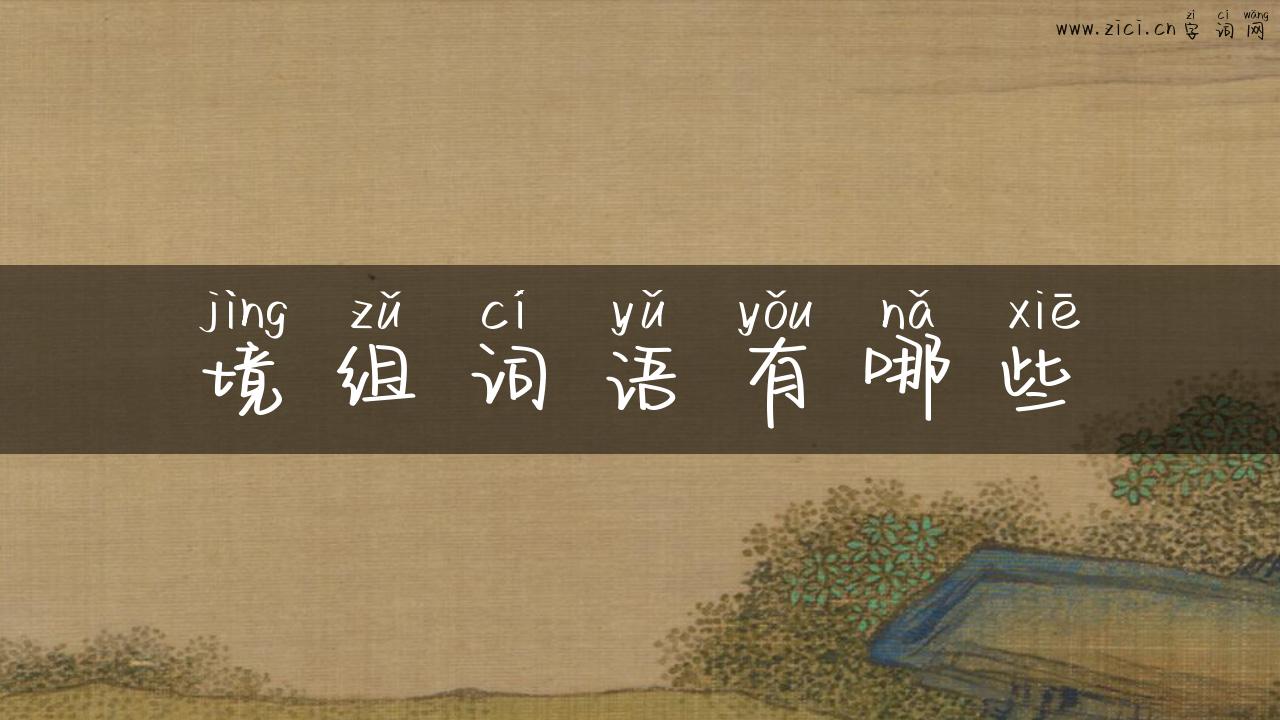 zì cí wǎng
www.zici.cn 字词网
jìng zǔ cí yǔ yǒu nǎ xiē
境组词语有哪些